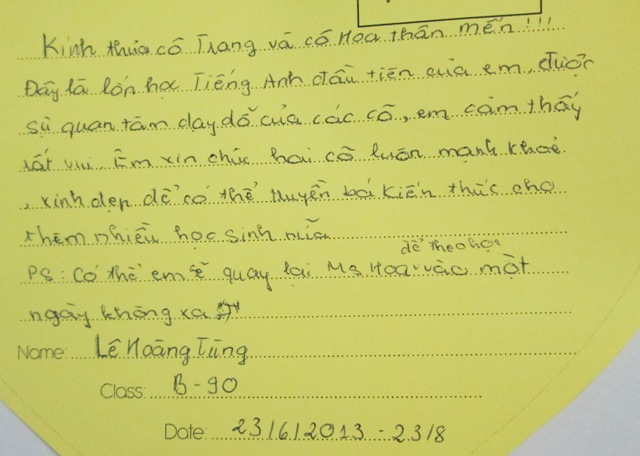 Kính thưa cô Trang và cô Hoa thân mến!!!
Đây là lớp học Tiếng Anh đầu tiên của em, được
sự quan tâm dạy dỗ của các cô, em cảm thấy
rất vui. Em xin chúc hai cô luôn mạnh khoẻ
, xinh đẹp để có thể truyền bá kiến thức cho
thêm nhiều học sinh nữa
PS: Có thể em sẽ quay lại Ms Hoa để theo học vào một
ngày không xa
Name: Lê Hoàng Tùng
Class: B-90
Date: 23/6/2013 - 23/8